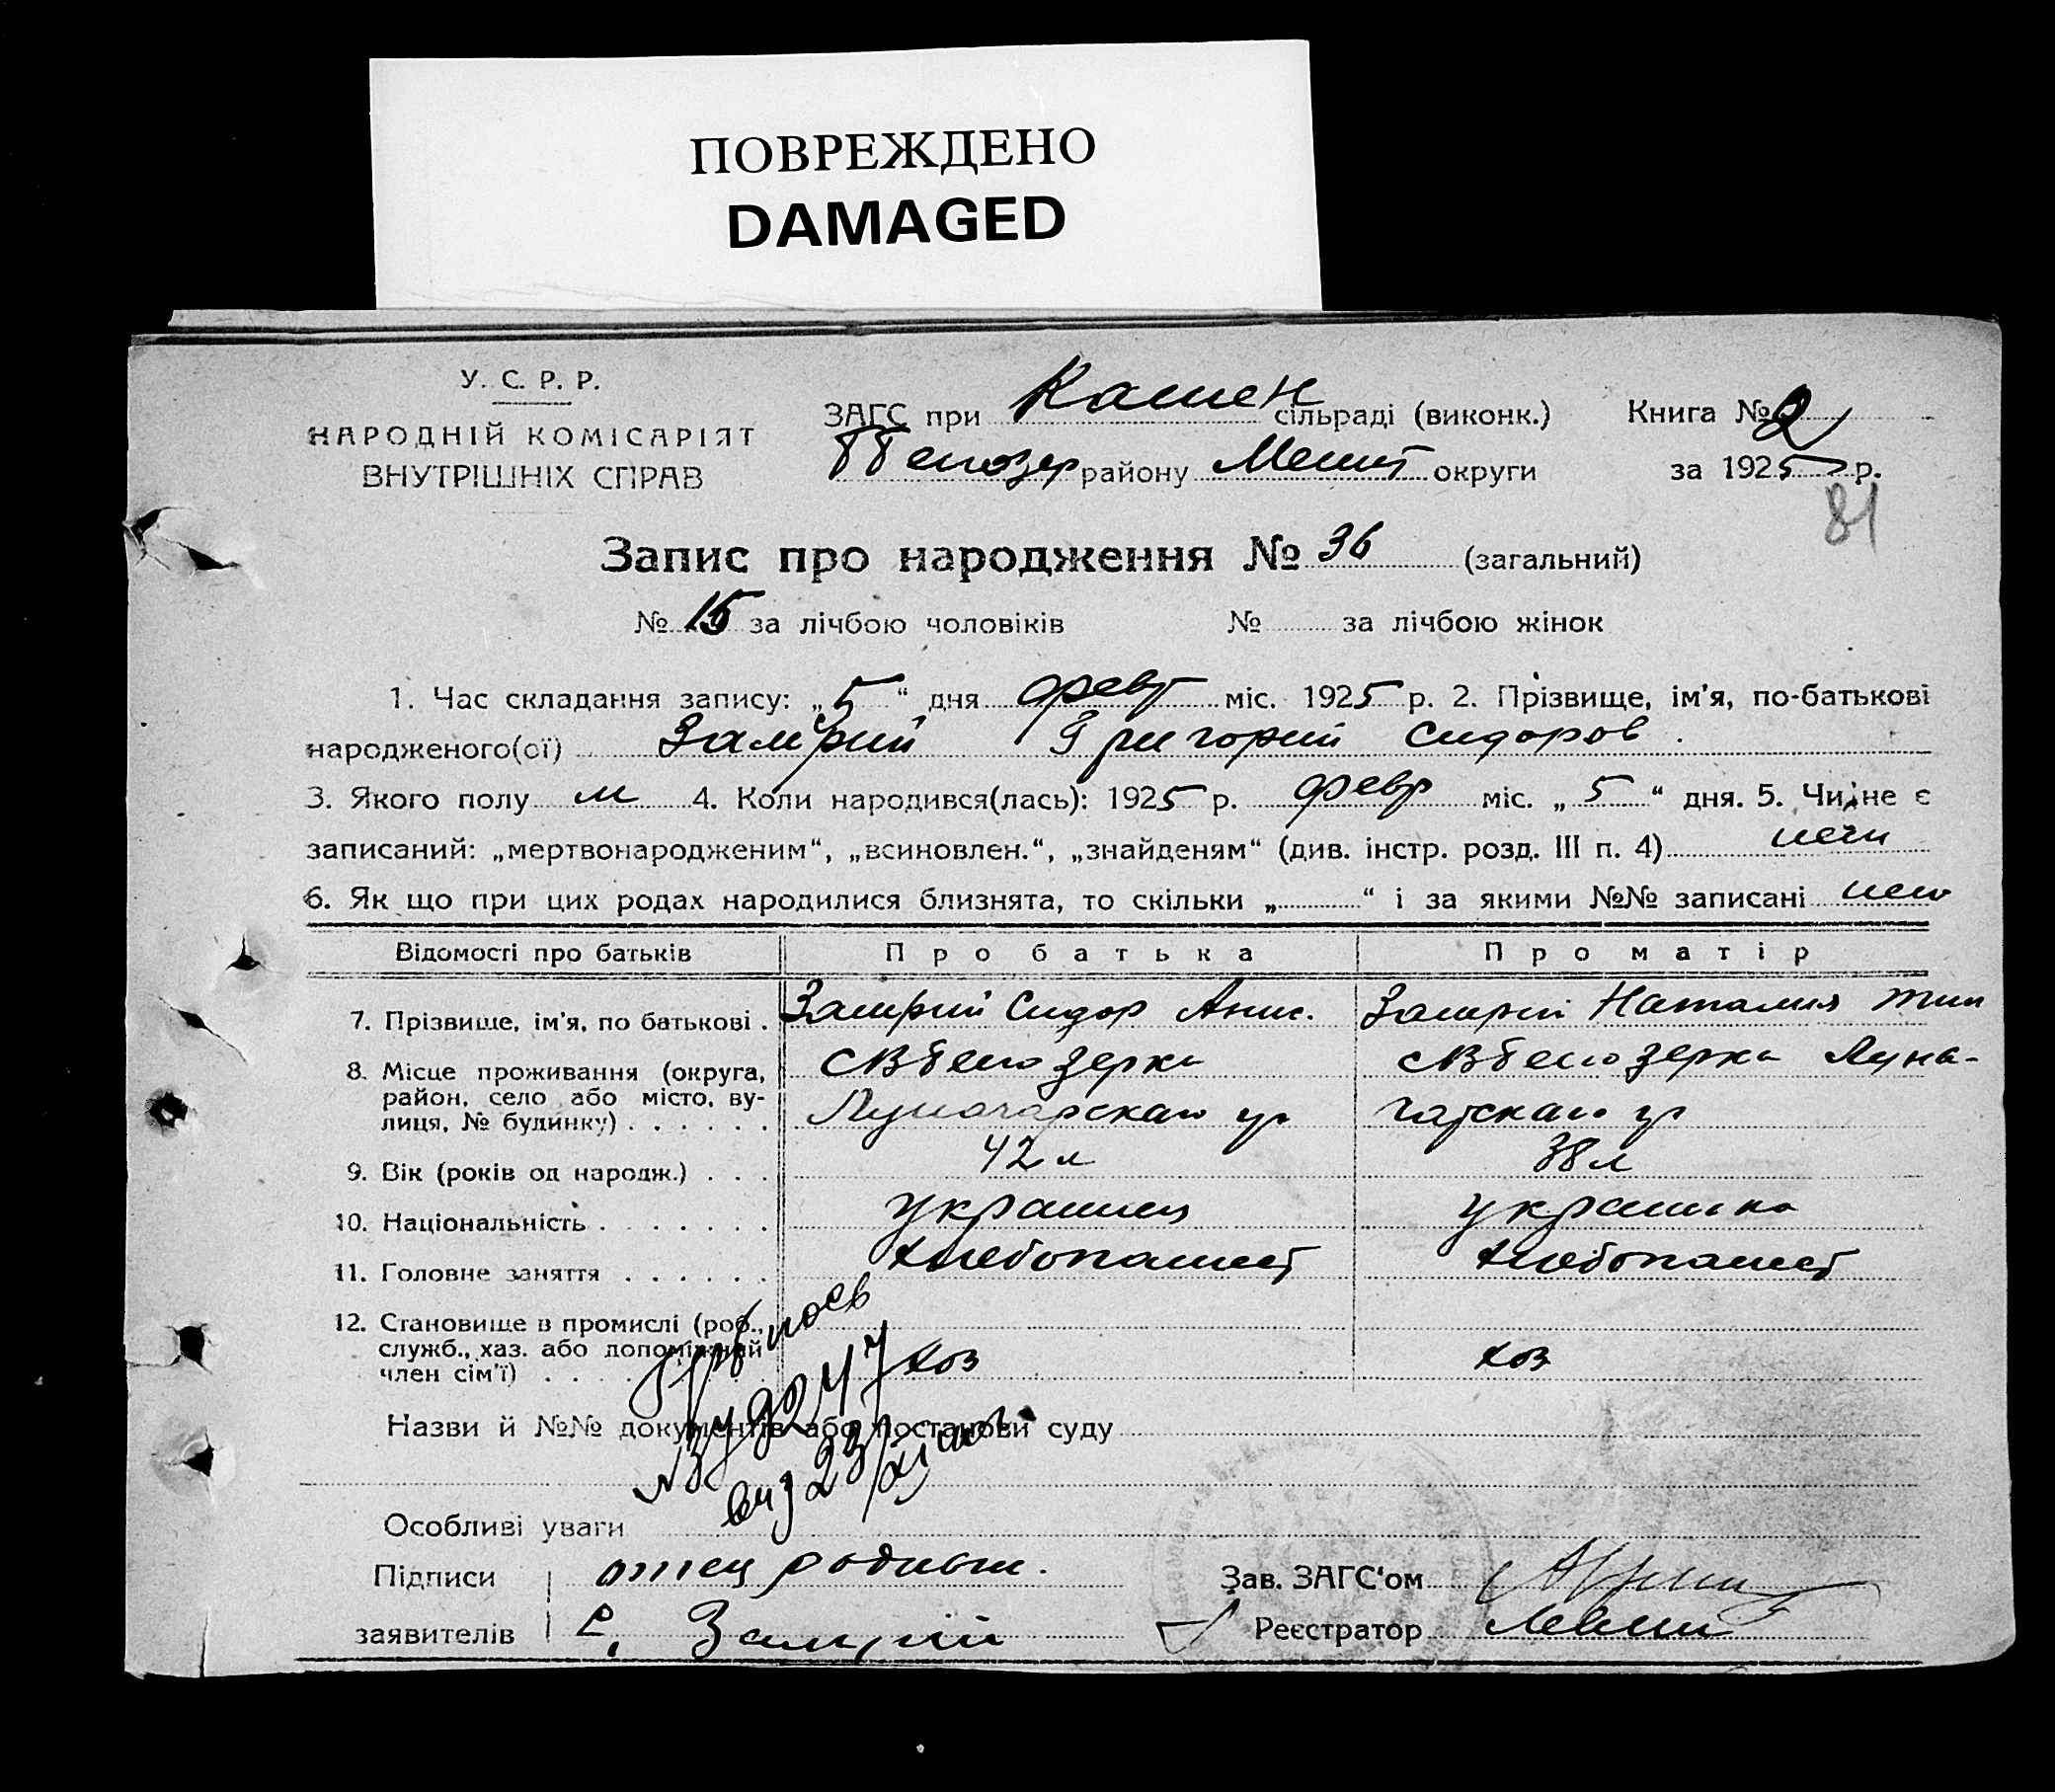 ПОВРЕЖДЕНО
DAMAGED
У. С. Р. Р.
НАРОДНІЙ КОМІСАРІЯТ
ВНУТРІШНІХ СПРАВ
ЗАГС при Камен сільраді (виконк.) Книга № 2
району Мелит округи за 1925 р.
81
Запис про народження № 36 (загальний)
№ 15 за лічбою чоловіків № за лічбою жінок
1. Час складання запису: „5“ дня февр міс. 1925 р. 2. Прізвище, ім'я, по-батькові
народженого(ої) Замрий Григорий Сидоров.
3. Якого полу м 4. Коли народився(лась): 1925 р. февр міс. „5“ дня. 5. Чи не є
записаний: „мертвонародженим“, „всиновлен.“, „знайденям“ (див. інстр. розд. III п. 4)
6. Як що при цих родах народилися близнята, то скільки „ “ і за якими №№ записані
Відомості про батьків Про батька Про матір
7. Прізвище, ім'я, по батькові . Замрий Сидор Анис. Замрий Наталия Тим
8. Місце проживання (округа, район, село або місто, вулиця, № будинку) . . . . . . СВбелозерка СВбелозерка Луна-
Луначарская ул чарская ул
9. Вік (років од народж.) . . . 42 л 38 л
10. Національність . . . . . . . украинец украинка
11. Головне заняття . . . . . . хлебопашест хлебопашест
12. Становище в промислі (роб., служб., хаз. або допоміжний член сім'ї) . . . . хоз хоз
Назви й №№ документів або постанови суду
Особливі уваги
Підписи отец родном. Зав. ЗАГС'ом
заявителів С. Замрій Реєстратор